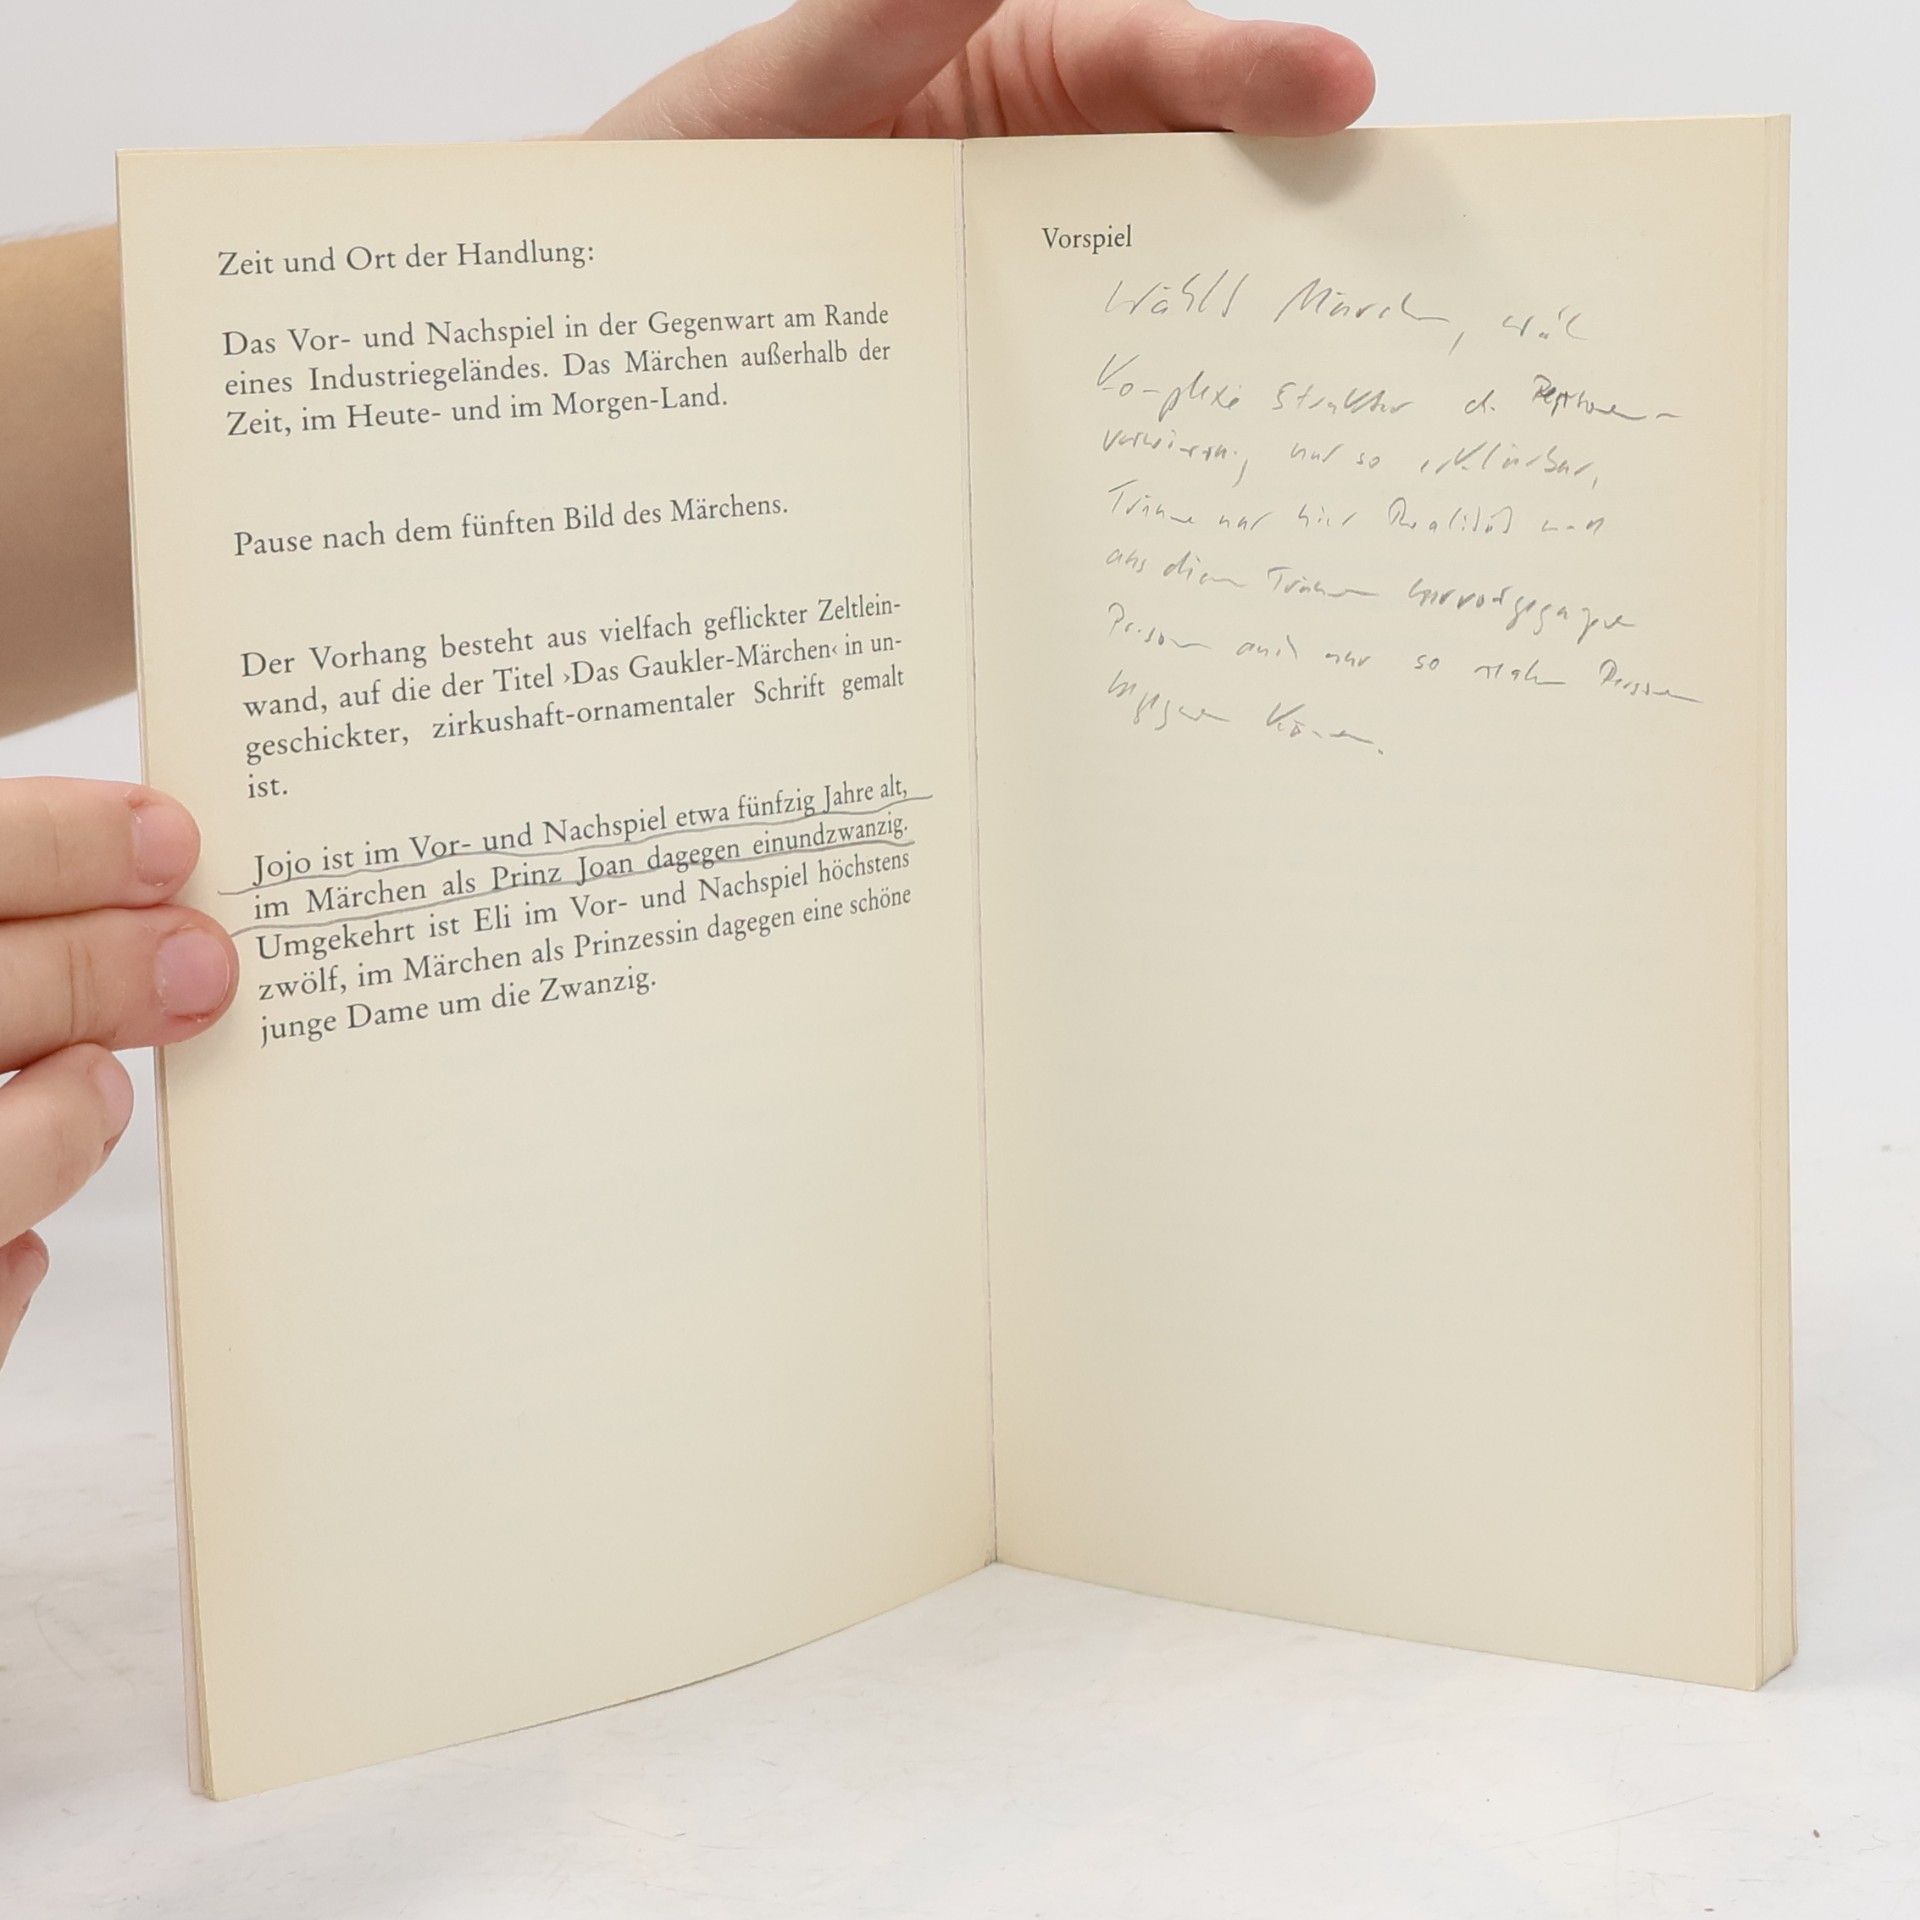 Zeit und Ort der Handlung:
Das Vor- und Nachspiel in der Gegenwart am Rande
eines Industriegeländes. Das Märchen außerhalb der
Zeit, im Heute- und im Morgen-Land.
Pause nach dem fünften Bild des Märchens.
Der Vorhang besteht aus vielfach geflickter Zeltlein-
wand, auf die der Titel ›Das Gaukler-Märchen‹ in un-
geschickter, zirkushaft-ornamentaler Schrift gemalt
ist.
Jojo ist im Vor- und Nachspiel etwa fünfzig Jahre alt,
im Märchen als Prinz Joan dagegen einundzwanzig.
Umgekehrt ist Eli im Vor- und Nachspiel höchstens
zwölf, im Märchen als Prinzessin dagegen eine schöne
junge Dame um die Zwanzig.
Vorspiel
Wählt Märchen, weil
Komplexe Struktur d. Personen-
verwirrung nur so erklärbar,
Träume nur hier Realität und
aus diesen Träumen hervorgegangene
Personen auch nur so realen Personen
begegnen können.